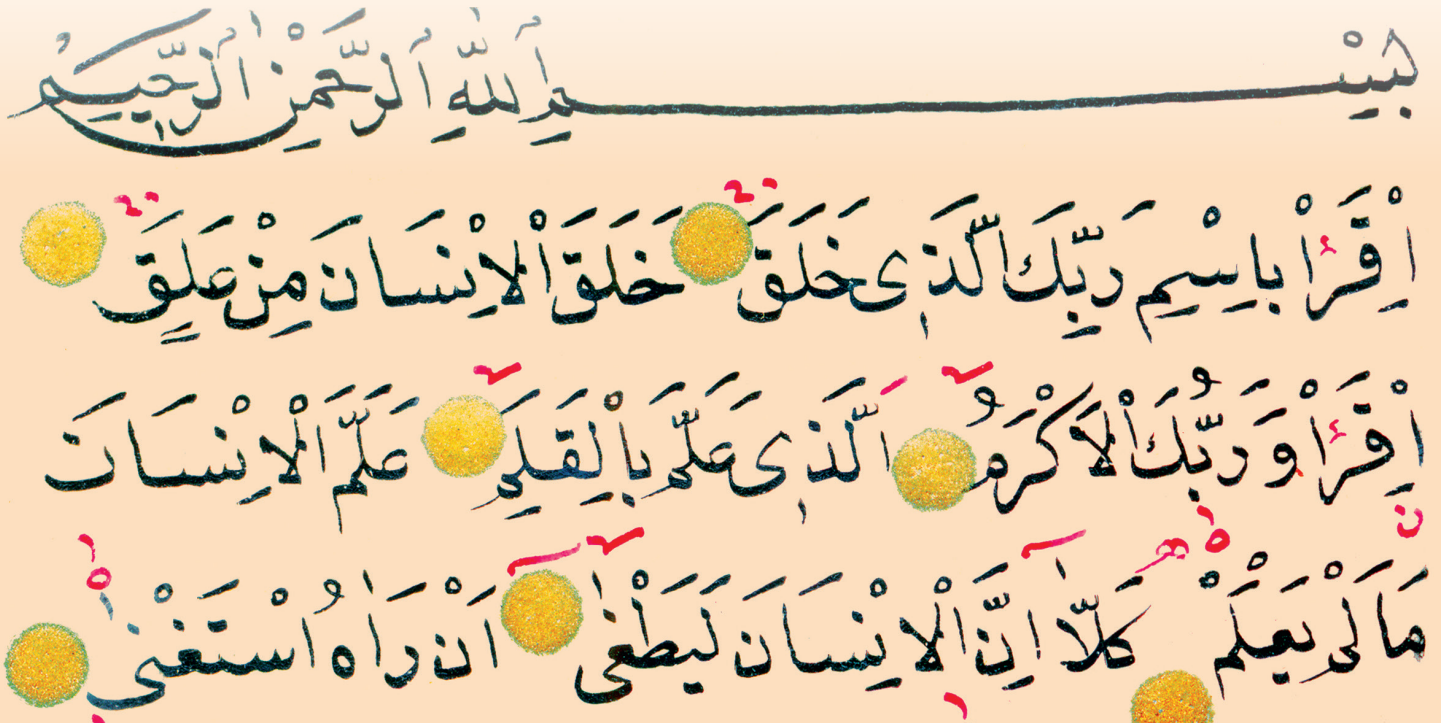 بِسْمِ اللّٰهِ الرَّحْمٰنِ الرَّحِيمِ
اِقْرَاْ بِاسْمِ رَبِّكَ الَّذِى خَلَقَ خَلَقَ الْاِنْسَانَ مِنْ عَلَقٍ
اِقْرَاْ وَرَبُّكَ الْاَكْرَمُ اَلَّذِى عَلَّمَ بِالْقَلَمِ عَلَّمَ الْاِنْسَانَ
مَا لَمْ يَعْلَمْ كَلَّا اِنَّ الْاِنْسَانَ لَيَطْغٰى اَنْ رَاٰهُ اسْتَغْنٰى